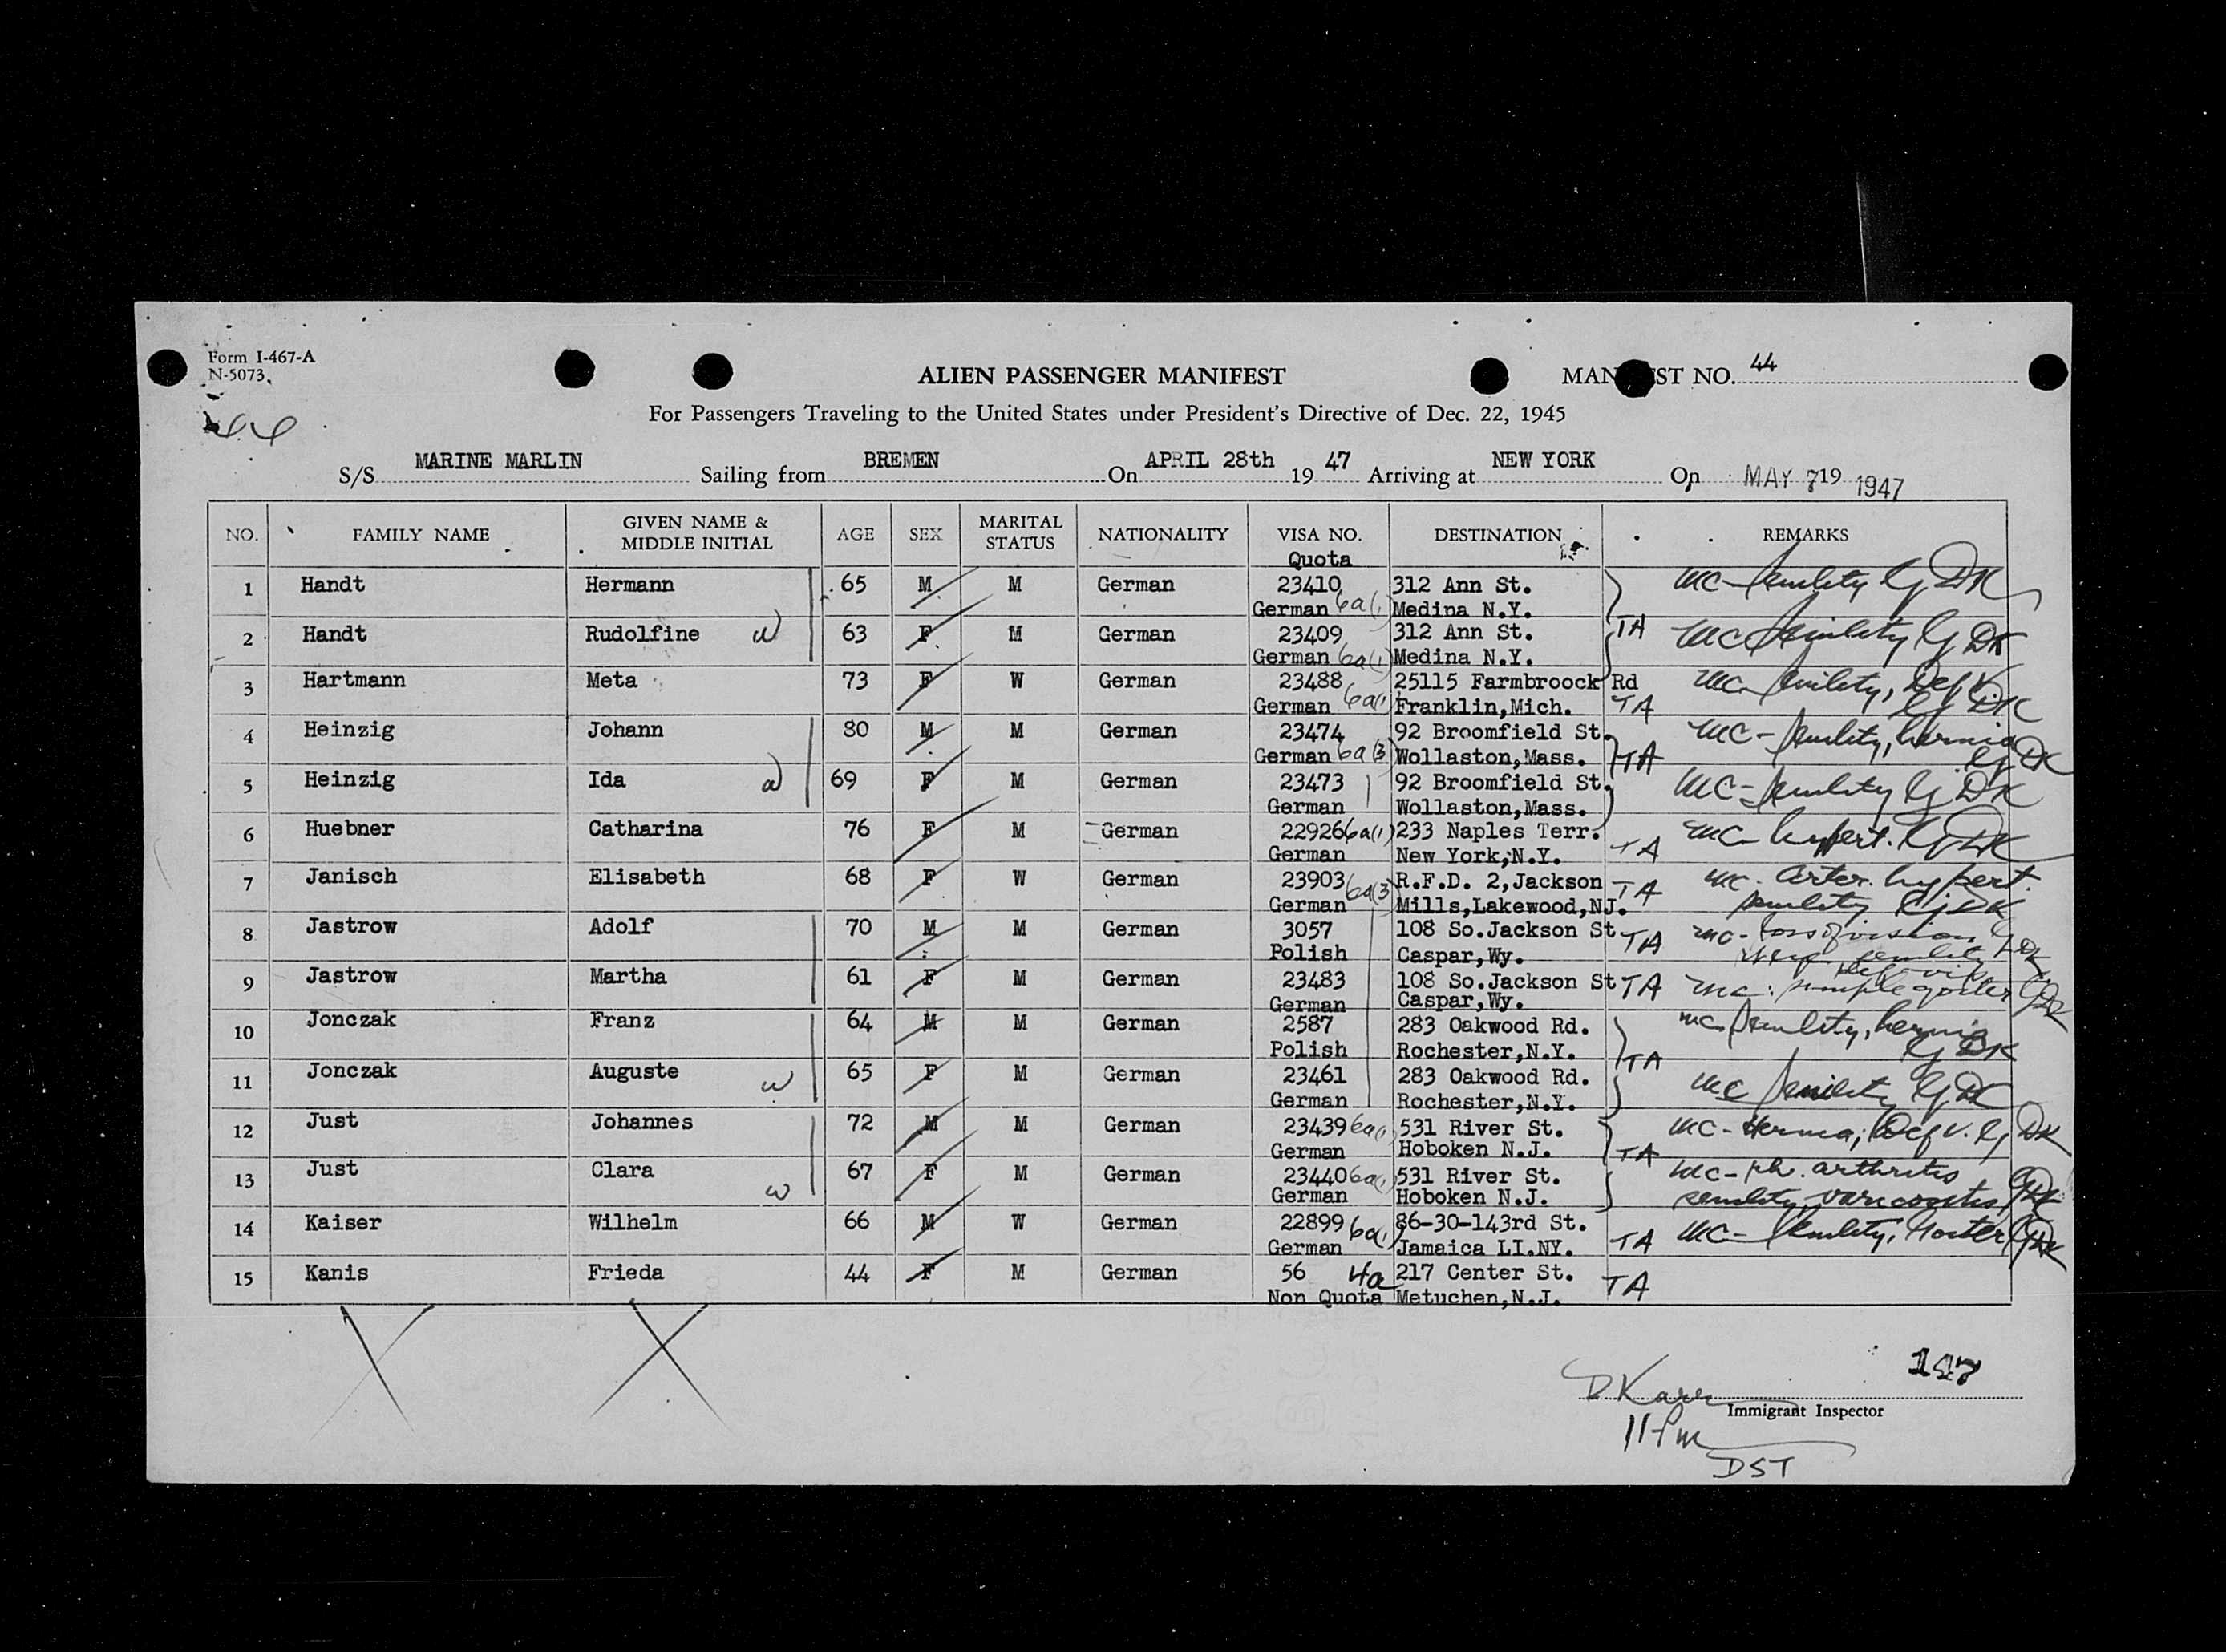 Form I-467-A
N-5073
ALIEN PASSENGER MANIFEST
MAN ST NO. 44
For Passengers Traveling to the United States under President's Directive of Dec. 22, 1945
44
S/S MARINE MARLIN Sailing from BREMEN On APRIL 28th 19 47 Arriving at NEW YORK On MAY 7 19 1947
NO. FAMILY NAME GIVEN NAME & MIDDLE INITIAL AGE SEX MARITAL STATUS NATIONALITY VISA NO. DESTINATION REMARKS
Quota
1 Handt Hermann 65 M M German 23410 312 Ann St. MC - senility DK
German 6a(1) Medina N.Y.
2 Handt Rudolfine w 63 F M German 23409 312 Ann St. TA MC senility DK
German 6a(1) Medina N.Y.
3 Hartmann Meta 73 F W German 23488 25115 Farmbroock Rd MC senility, Def V.
German 6a(1) Franklin,Mich. TA DK
4 Heinzig Johann 80 M M German 23474 92 Broomfield St. MC - senility, hernia
German 6a(3) Wollaston,Mass. TA DK
5 Heinzig Ida w 69 F M German 23473 92 Broomfield St. MC - senility DK
German Wollaston,Mass.
6 Huebner Catharina 76 F M German 22926 6a(1) 233 Naples Terr. MC hypert. DK
German New York,N.Y. TA
7 Janisch Elisabeth 68 F W German 23903 6a(3) R.F.D. 2,Jackson TA MC. arter. hypert.
German Mills,Lakewood,NJ. senility DK
8 Jastrow Adolf 70 M M German 3057 108 So.Jackson St TA MC - loss of vision
Polish Caspar,Wy. senility DK
9 Jastrow Martha 61 F M German 23483 108 So.Jackson St TA MC. simple goiter DK
German Caspar,Wy.
10 Jonczak Franz 64 M M German 2587 283 Oakwood Rd. MC senility, hernia
Polish Rochester,N.Y. TA DK
11 Jonczak Auguste w 65 F M German 23461 283 Oakwood Rd. MC senility DK
German Rochester,N.Y.
12 Just Johannes 72 M M German 23439 6a(1) 531 River St. MC - Hernia, Def V. DK
German Hoboken N.J. TA
13 Just Clara w 67 F M German 23440 6a(1) 531 River St. MC - rh. arthritis
German Hoboken N.J. senility, DK
14 Kaiser Wilhelm 66 M W German 22899 6a(1) 86-30-143rd St. MC - senility, Goiter DK
German Jamaica LI.NY. TA
15 Kanis Frieda 44 F M German 56 4a 217 Center St. TA
Non Quota Metuchen,N.J.
147
D Karr
Immigrant Inspector
11 pm
DST